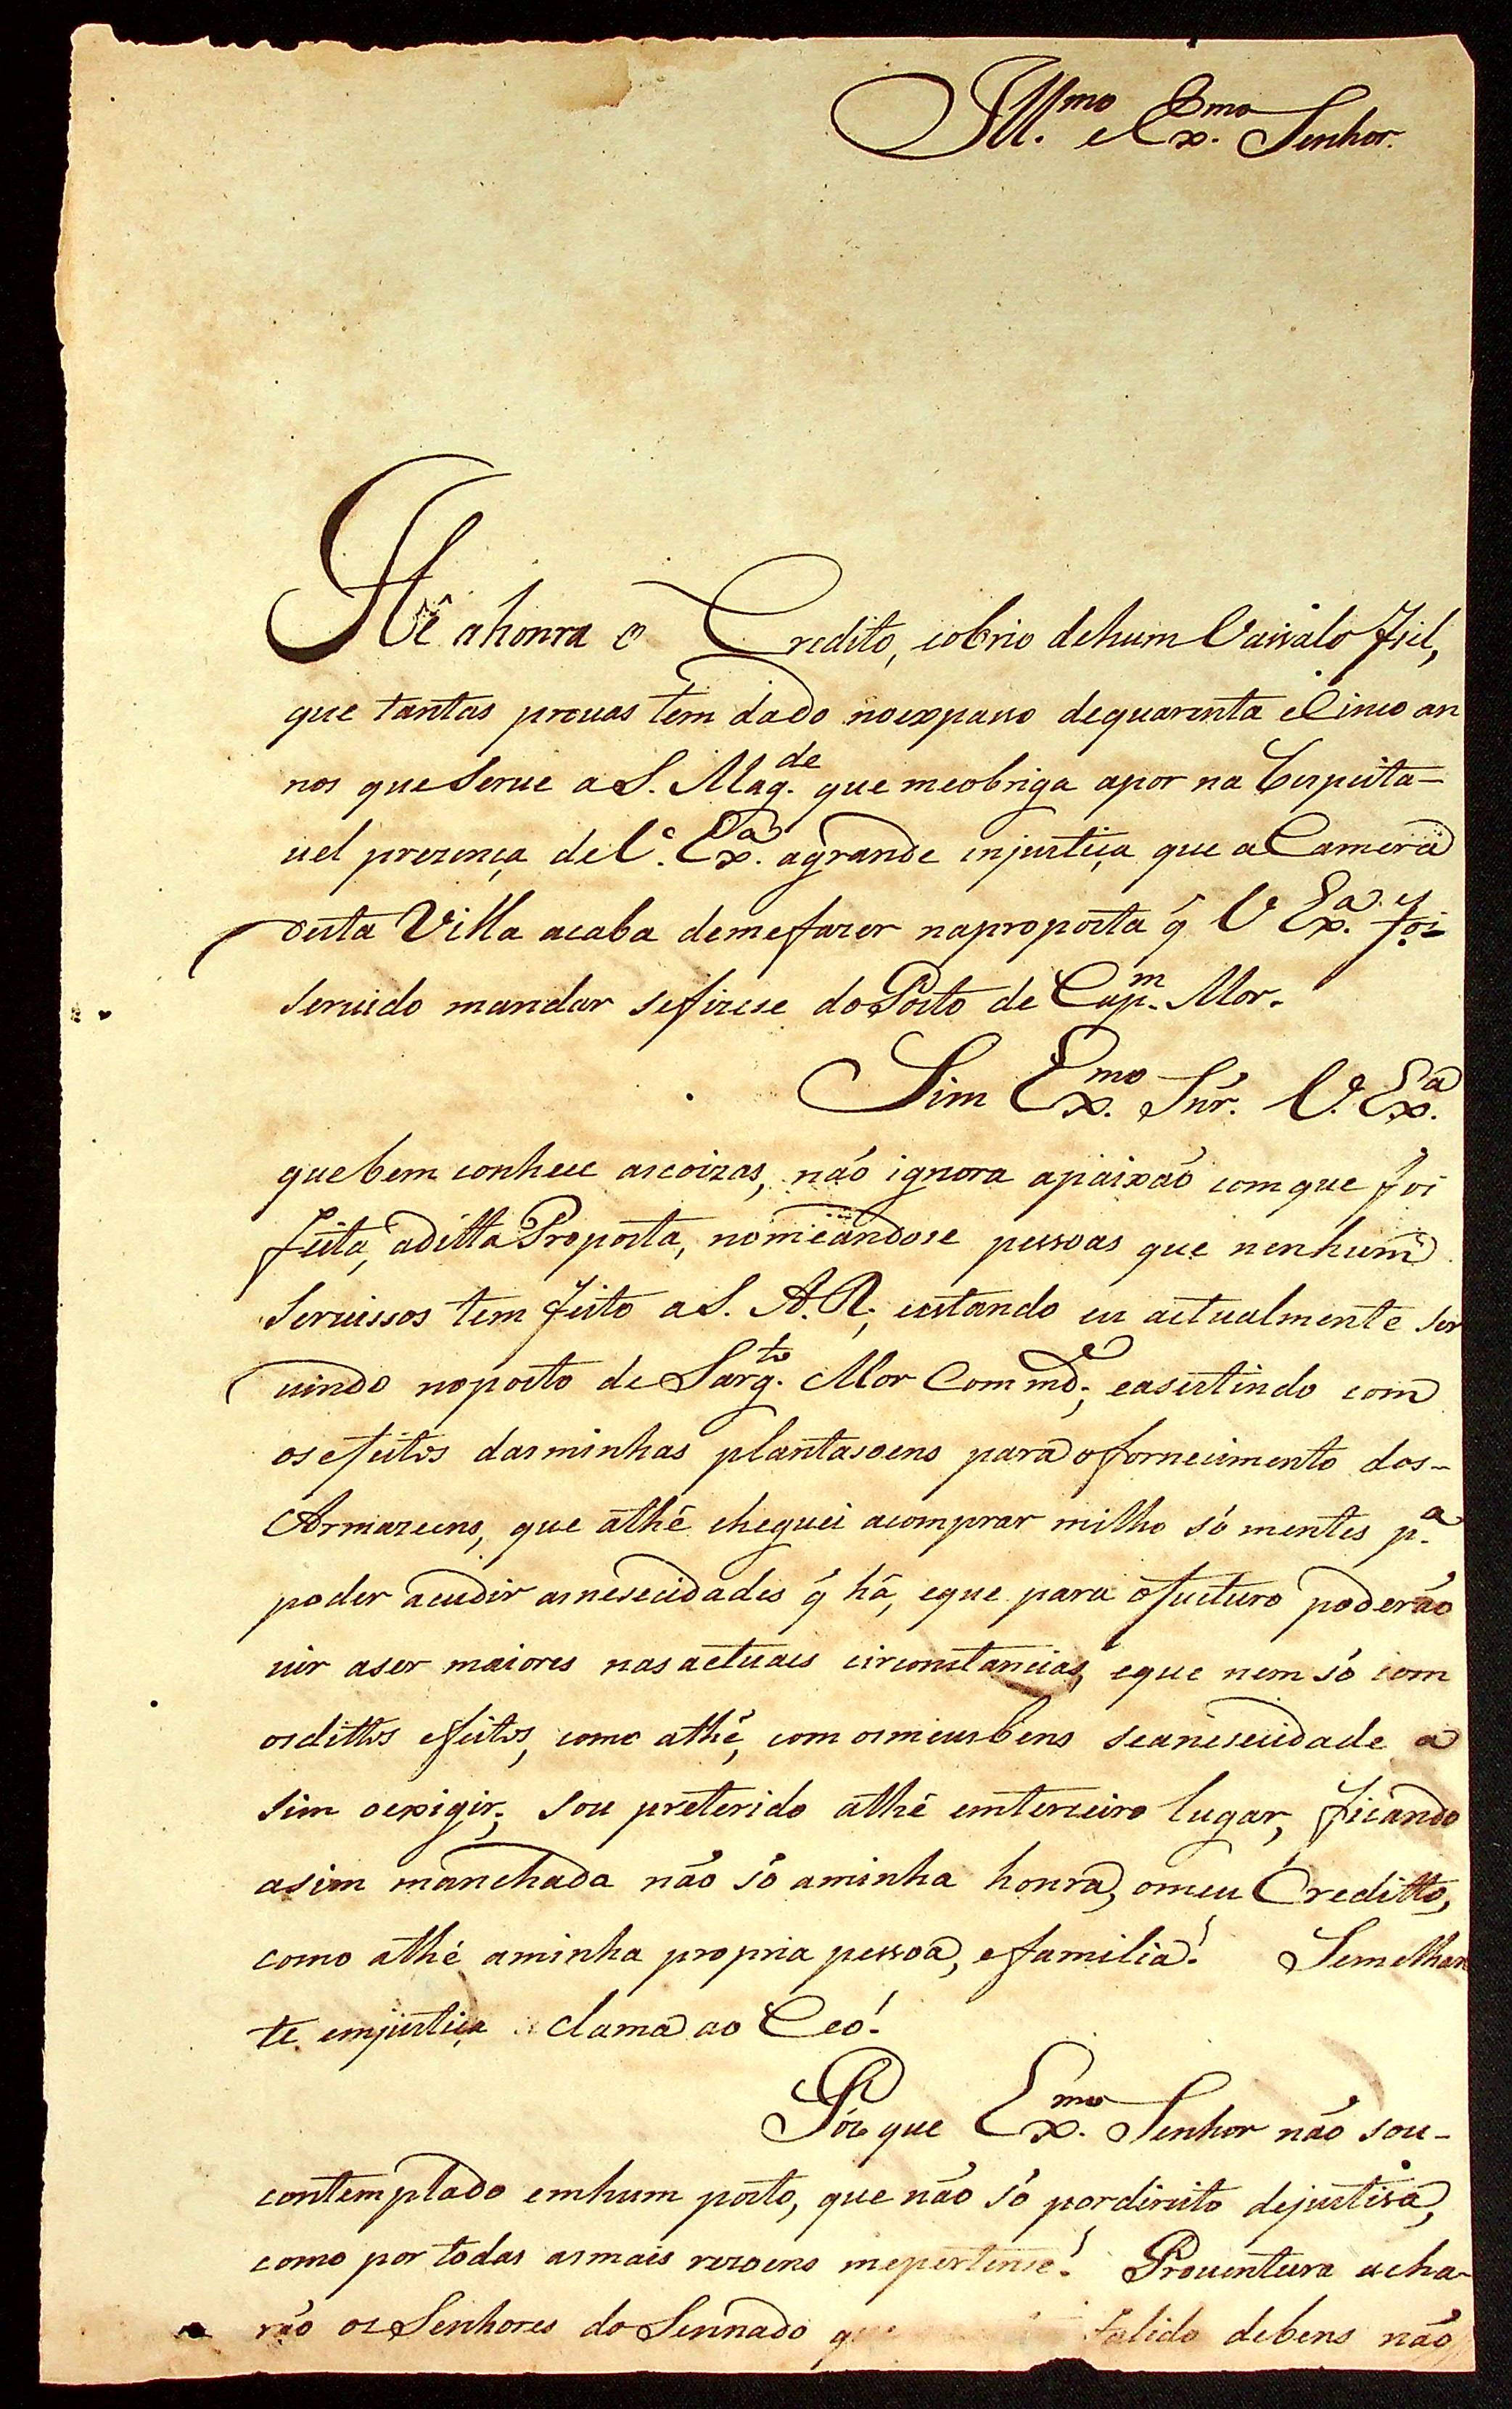 Ill.mo e Ex.mo Senhor.
Hê ahonra o Credito, eobrio dehum Vassalo Fiel,
que tantas prouas tem dado noexpasso dequarenta eCinco an
nos queServe a S. Mag.de que meobriga apor na Respeita-
uel prezença deV. Ex.a agrande injustiça que aCamera
desta Villa acaba demefazer naproposta q̃ V Ex.a foi
servido mandar sefizese doPosto de Cap.m Mor.
Sim Ex.mo Snr. V. Ex.a
quebem conhece ascoizas, não ignora apaixão comque foi
feita, aditta Proposta, nomeandose pessoas que nenhum
Servissos tem feito aS. A. R; eestando eu actualmente ser
uindo noposto de Sarg.to Mor Comm.de; easestindo com
osefeitos dasminhas plantasoens para ofornecimento dos-
Armazeens, que athé cheguei acomprar milho só mentes p.a
poder acudir asnesecidades q̃ há, eque para ofucturo poderão
uir aser maiores nasactuaes circonstancias, eque nem só com
osdittos efeitos, como athé, com osmeusbens seanesecidade a
sim oexigir; sou preterido athé emterceiro lugar, ficando
asim manchada não só aminha honra, omeu Creditto,
como athé aminha propria pessoa, efamilia! Semelhan
te emjustiça clama ao Ceo!
Pór que Ex.mo Senhor não sou-
contemplado emhum posto, que não só pordireito dejustisa,
como por todas asmais rezoens mepertense! Prouentura acha-
rão os Senhores do Sennado que falido debens não